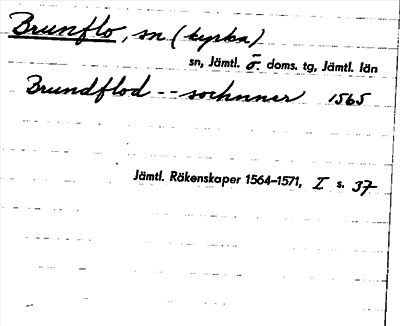 Brunflo, sn (kyrka)
sn, Jämtl. ö. doms. tg, Jämtl. län
Brundflod -- sochnner 1565
Jämtl. Räkenskaper 1564-1571, I s. 37